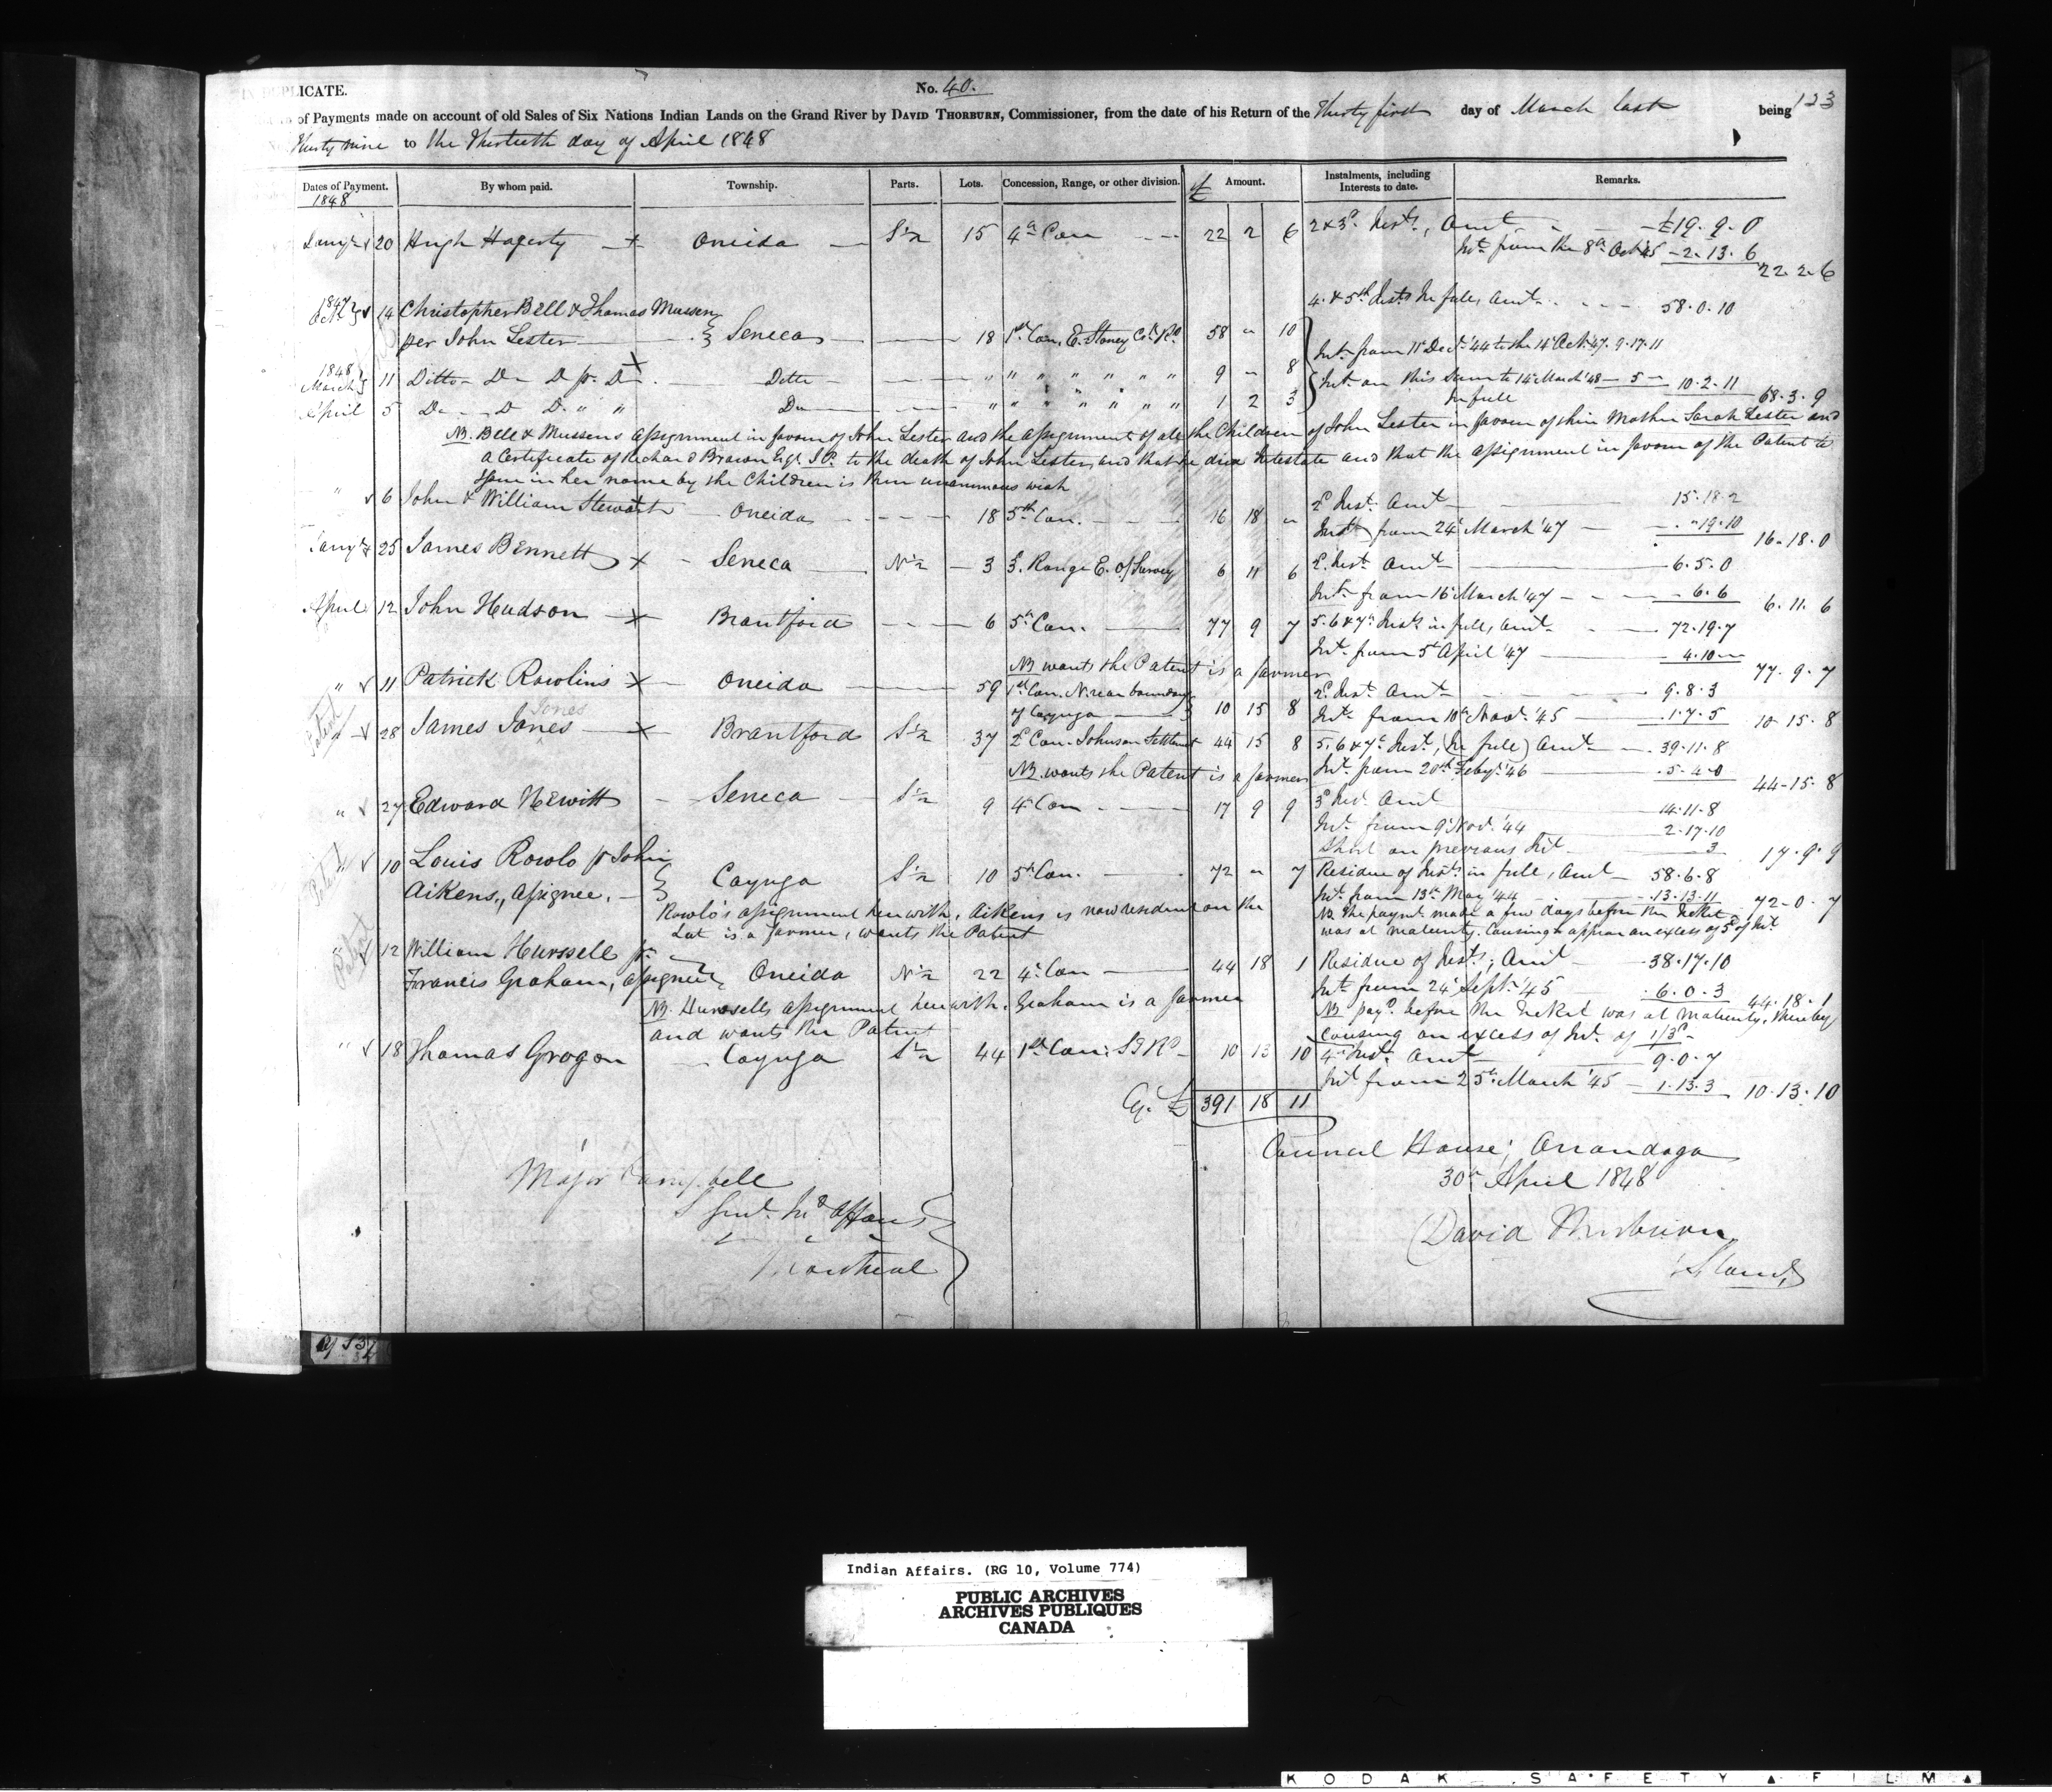 IN DUPLICATE.
No. 40.
123
of Payments made on account of old Sales of Six Nations Indian Lands on the Grand River by DAVID THORBURN, Commissioner, from the date of his Return of the Thirty first day of March last being
Thirty nine to the Thirtieth day of April 1848
Dates of Payment. By whom paid. Township. Parts. Lots. Concession, Range, or other division. £ Amount. Instalments, including Interests to date. Remarks.
1848
Jany 20 Hugh Hagerty Oneida S½ 15 4th Con 22 2 6 2 & 3d Insts, Amt £19.9.0
Int. from the 8th Oct '45 2.13.6
22.2.6
1847 Octr 14 Christopher Bell & Thomas Mussen 4 & 5th Insts In full, Amt 58.0.10
per John Lester } Seneca 18 1st Con. E. Stoney Ck. Rd. 58 " 10
Int. from 11 Dect. '44 to the 14 Oct. '47. 9.17.11
1848 March 11 Ditto Do Do pr. Do Ditto " " " " " " " 9 " 8 Int. on this sum to 14 March '48 5 10.2.11
April 5 Do Do Do " " Do " " " " " " " 1 2 3 In full 68.3.9
NB. Bell & Mussens assignment in favour of John Lester and the assignment of all the Children of John Lester in favour of their Mother Sarah Lester and
a Certificate of Richard Brown Esqr. J.P. to the death of John Lester, and that he died Intestate and that the assignment in favour of the Patent to
issue in her name by the Children is their unanimous wish
" 6 John & William Stewart Oneida 18 5th Con. 16 18 " 2d Inst. Amt 15.18.2
Int. from 24 March '47 19.10
16.18.0
Jany 25 James Bennett Seneca N½ 3 3. Range E. of Survey 6 11 6 2. Inst. Amt 6.5.0
Int. from 16 March '47 6.6
6.11.6
April 12 John Hudson Brantford 6 5th Con. 77 9 7 5. 6 & 7th Insts in full, Amt 72.19.7
Int. from 5th April '47 4.10
77.9.7
NB wants the Patent is a farmer
" 11 Patrick Rowlins Oneida 59 1st Con. N. rear boundary of Cayuga 10 15 8 2d Inst. Amt 9.8.3
Int. from 10th Novr. '45 1.7.5
10.15.8
Patent
Jones
" 28 James Jones Brantford S½ 37 2d Con. Johnson Settlemt 44 15 8 5. 6 & 7th Inst, (In full) Amt 39.11.8
NB. wants the Patent is a farmer Int. from 20th Feby. '46 5.4.0
44.15.8
" 27 Edward Hewitt Seneca S½ 9 4th Con 17 9 9 3d Inst. Amt 14.11.8
Int. from 9 Novr. '44 2.17.10
Short on previous Int 3
17.9.9
Patent
" 10 Louis Rowlo pr John
Aikens, Assignee. } Cayuga S½ 10 5th Con. 72 " 7 Residue of Insts. in full, Amt 58.6.8
Int. from 13th May '44 13.13.11
72.0.7
Rowlo's assignment herewith, Aikens is now resident on the
Lot is a farmer, wants the Patent
NB The paymt. made a few days before the ticket
was at maturity. Causing to appear an excess of 5d of Int.
Patent
" 12 William Hurssell pr
Francis Graham, assignee } Oneida N½ 22 4th Con 44 18 1 Residue of Insts; Amt 38.17.10
Int. from 24 Sept. '45 6.0.3
44.18.1
NB. Hurssells assignment herewith. Graham is a farmer
and wants the Patent
NB payd. before the ticket was at maturity, thereby
causing an excess of Int. of 1/3d
" 18 Thomas Grogan Cayuga S½ 44 1st Con. S J Rd 10 13 10 4th Inst. Amt 9.0.7
Int. from 25th March '45 1.13.3
10.13.10
Cy. £ 391 18 11
Council House, Onondaga
30th April 1848
Major Campbell
S Gent. Ind Affairs
Montreal
David Thorburn
Indian Affairs. (RG 10, Volume 774)
PUBLIC ARCHIVES
ARCHIVES PUBLIQUES
CANADA
KODAK SAFETY FILM